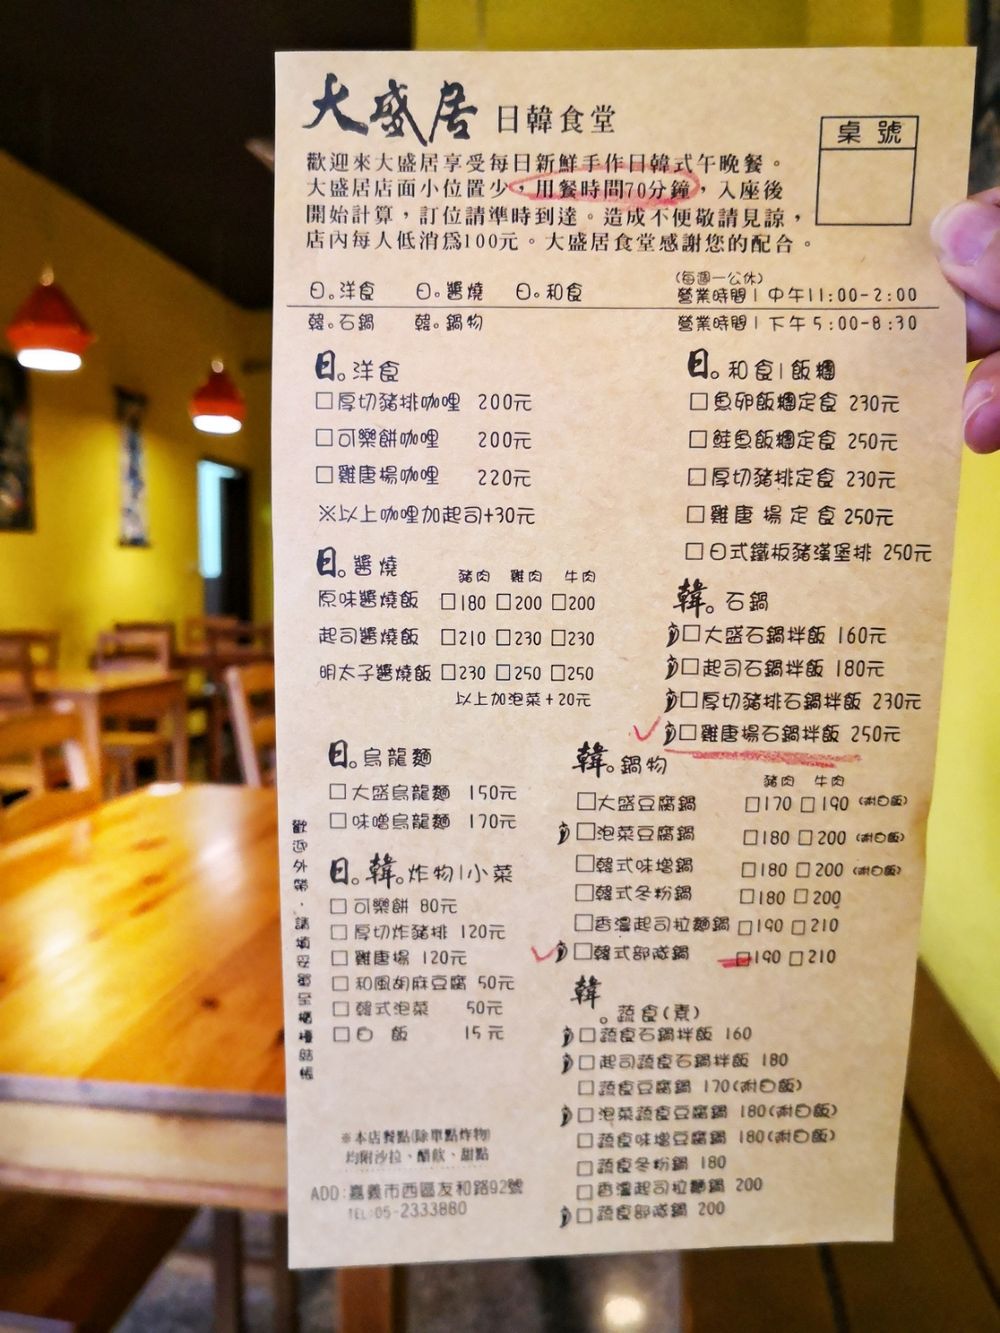 大盛居 日韓食堂
桌號
歡迎來大盛居享受每日新鮮手作日韓式午晚餐。
大盛居店面小位置少，用餐時間70分鐘，入座後
開始計算，訂位請準時到達。造成不便敬請見諒，
店內每人低消為100元。大盛居食堂感謝您的配合。
日。洋食 日。醬燒 日。和食
(每週一公休)
營業時間|中午11:00-2:00
韓。石鍋 韓。鍋物
營業時間|下午5:00-8:30
日。洋食
□厚切豬排咖哩 200元
□可樂餅咖哩 200元
□雞唐揚咖哩 220元
※以上咖哩加起司+30元
日。醬燒
豬肉 雞肉 牛肉
原味醬燒飯 □180 □200 □200
起司醬燒飯 □210 □230 □230
明太子醬燒飯 □230 □250 □250
以上加泡菜+20元
日。烏龍麵
□大盛烏龍麵 150元
□味噌烏龍麵 170元
日。韓。炸物|小菜
□可樂餅 80元
□厚切炸豬排 120元
□雞唐揚 120元
□和風胡麻豆腐 50元
□韓式泡菜 50元
□白 飯 15元
歡迎外帶，請填妥單至櫃檯結帳
※本店餐點(除單點炸物)
均附沙拉、醋飲、甜點
ADD:嘉義市西區友和路92號
TEL:05-2333880
日。和食|飯糰
□魚卵飯糰定食 230元
□鮭魚飯糰定食 250元
□厚切豬排定食 230元
□雞唐揚定食 250元
□日式鐵板豬漢堡排 250元
韓。石鍋
□大盛石鍋拌飯 160元
□起司石鍋拌飯 180元
□厚切豬排石鍋拌飯 230元
□雞唐揚石鍋拌飯 250元
韓。鍋物
豬肉 牛肉
□大盛豆腐鍋 □170 □190 (附白飯)
□泡菜豆腐鍋 □180 □200 (附白飯)
□韓式味增鍋 □180 □200 (附白飯)
□韓式冬粉鍋 □180 □200
□香濃起司拉麵鍋 □190 □210
□韓式部隊鍋 □190 □210
韓。蔬食(素)
□蔬食石鍋拌飯 160
□起司蔬食石鍋拌飯 180
□蔬食豆腐鍋 170(附白飯)
□泡菜蔬食豆腐鍋 180(附白飯)
□蔬食味增豆腐鍋 180(附白飯)
□蔬食冬粉鍋 180
□香濃起司拉麵鍋 200
□蔬食部隊鍋 200